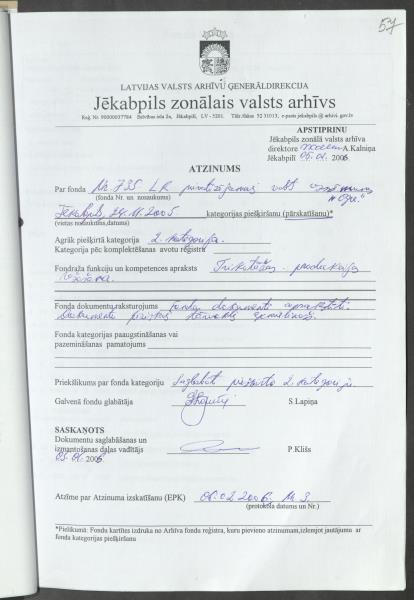 57
LATVIJAS VALSTS ARHĪVU ĢENERĀLDIREKCIJA
Jēkabpils zonālais valsts arhīvs
Reģ. Nr. 90000057704 Brīvības iela 2a, Jēkabpilī, LV - 5201. Tālr./fakss 52 31013, e-pasts jekabpils @ arhivi.gov.lv
APSTIPRINU
Jēkabpils zonālā valsts arhīva
direktore A.Kalniņa
Jēkabpilī 05.01. 2006
ATZINUMS
Par fonda Nr. 735 LR privatizējamais valsts uzņēmums
(fonda Nr. un nosaukums) "Oga"
Jēkabpils, 24.11.2005 kategorijas piešķiršanu (pārskatīšanu)*
(vietas nosaukums, datums)
Agrāk piešķirtā kategorija 2. kategorija.
Kategorija pēc komplektēšanas avotu reģistra
Fondraža funkciju un kompetences apraksts Trikotāžas produkcijas
ražošana.
Fonda dokumentu raksturojums fonda dokumenti aprakstīti.
Dokumentu fiziskais stāvoklis apmierinošs.
Fonda kategorijas paaugstināšanas vai
pazemināšanas pamatojums
Priekšlikums par fonda kategoriju Saglabāt piešķirto 2. kategoriju.
Galvenā fondu glabātāja S.Lapiņa
SASKAŅOTS
Dokumentu saglabāšanas un
izmantošanas daļas vadītājs P.Klišs
05.01. 2006.
Atzīme par Atzinuma izskatīšanu (EPK) 06.02.2006. Nr. 3.
(protokola datums un Nr.)
*Pielikumā: Fonda kartītes izdruka no Arhīva fondu reģistra, kuru pievieno atzinumam, izlemjot jautājumu ar
fonda kategorijas piešķiršanu